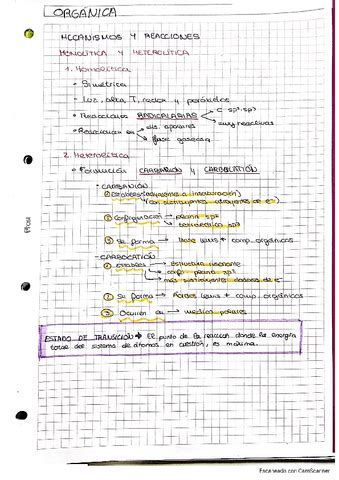 ORGÁNICA
MECANISMOS Y REACCIONES
HOMOLÍTICA Y HETEROLÍTICA
1. Homolítica
• Simétrica
• Luz, alta T, redox y peróxidos
• Reacciones RADICALARIAS
C sp², sp³
muy reactivas
• Reaccionan en
dis. apolares
fase gaseosa
2. Heterolítica
• Formación CARBANIÓN y CARBOCATIÓN
- CARBANIÓN
① Estables (adyacente a insaturación)
(con sustituyentes atrayentes de e⁻)
② Configuración
plana sp²
tetraédrica sp³
③ Se forma → Base Lewis + comp. orgánicos
- CARBOCATIÓN
① estables
Estructura
conf. plana sp²
más sustituyentes dadores de e⁻
② Se forma → Ácidos Lewis + comp. orgánicos
③ Ocurren en → medios polares
ESTADO DE TRANSICIÓN → El punto de la reacción donde la energía
total del sistema de átomos en cuestión, es máxima.
Escaneado con CamScanner